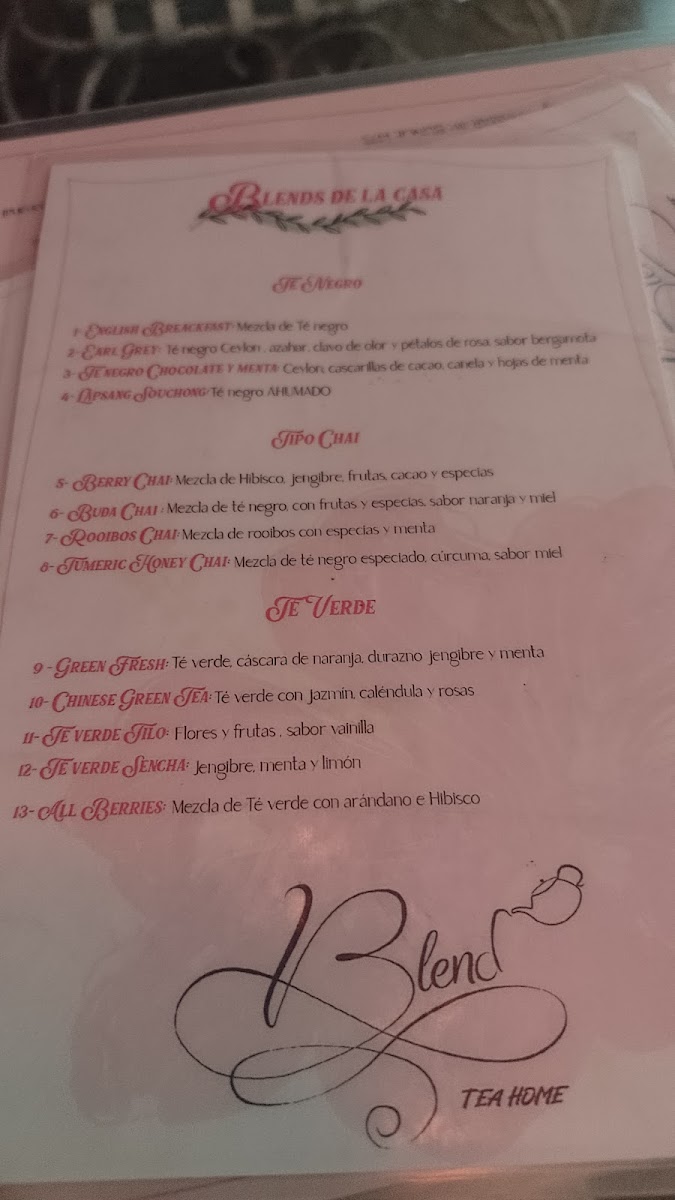 BLENDS DE LA CASA
TÉ NEGRO
1- ENGLISH BREACKFAST: Mezcla de Té negro
2- EARL GREY: Té negro Ceylon , azahar, clavo de olor y pétalos de rosa, sabor bergamota
3- TÉ NEGRO CHOCOLATE Y MENTA: Ceylon, cascarillas de cacao, canela y hojas de menta
4- LAPSANG SOUCHONG: Té negro AHUMADO
TIPO CHAI
5- BERRY CHAI: Mezcla de Hibisco, jengibre, frutas, cacao y especias
6- BUDA CHAI : Mezcla de té negro, con frutas y especias, sabor naranja y miel
7- ROOIBOS CHAI: Mezcla de rooibos con especias y menta
8- TUMERIC HONEY CHAI: Mezcla de té negro especiado, cúrcuma, sabor miel
TÉ VERDE
9 - GREEN FRESH: Té verde, cáscara de naranja, durazno jengibre y menta
10- CHINESE GREEN TEA: Té verde con Jazmín, caléndula y rosas
11- TÉ VERDE TILO: Flores y frutas , sabor vainilla
12- TÉ VERDE SENCHA: Jengibre, menta y limón
13- ALL BERRIES: Mezcla de Té verde con arándano e Hibisco
Blend
TEA HOME